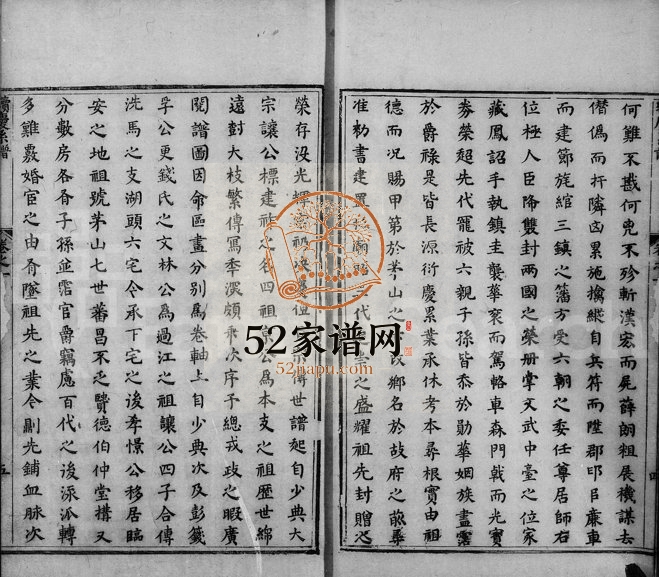 何難不戡何兇不殄斬漢宏而屍薛朗粗展機謀去
僭偽而扞隣凶累施擒縱自兵符而陞郡印臣廉車
而建節旄綰三鎮之藩方受六朝之委任尊居師右
位極人臣降雙封兩國之榮冊掌文武中臺之位家
藏鳳詔手執鎮圭襲華袞而駕輅車森門戟而光寶
劵榮超先代寵被六親子孫皆忝於勛華姻族盡霑
於爵祿是皆長源衍慶累業承休考本尋根實由祖
德而况賜甲第於茅山之 故鄉名於故府之前彞
准勑書建置 廟 代 之盛耀祖先封贈之
榮存没光 傳世譜起自少典大
宗讓公標建 之名四祖 公為本支之祖歴世綿
遠封大枝繁傳寫季深頗乖次序予總戎政之暇廣
閲譜圖因命區畫分别為卷軸上自少典次及彭籛
孚公更錢氏之文林公為過江之祖讓公四子合傳
洗馬之支湖頭六宅今承下宅之後孝憬公移居臨
安之地祖號茅山七世蕃昌不乏賢德伯仲堂構又
分數房各有子孫並霑官爵竊慮百代之後泳派轉
多難覈婚宦之由有墜祖先之業今剛先鋪血脉次
卷之一
五
四
52家谱网
52jiapu.com